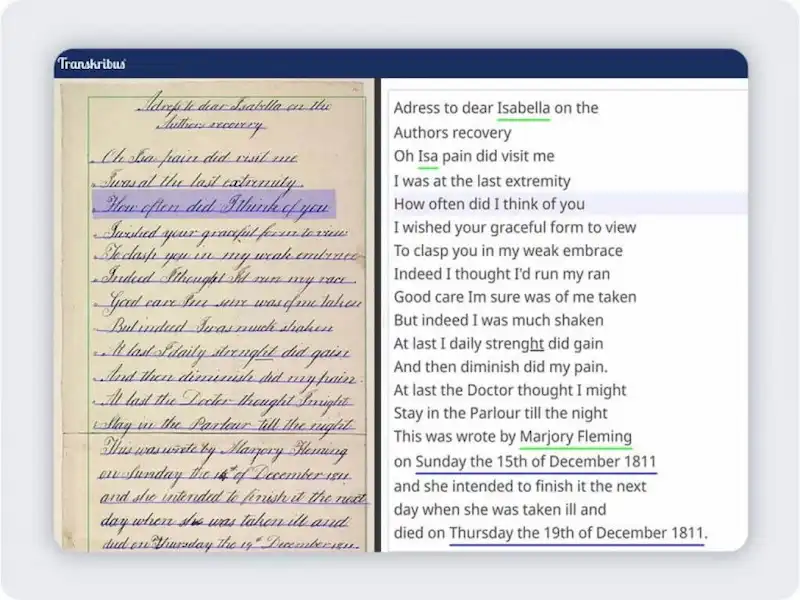 Transkribus
Adress to dear Isabella on the
Authors recovery
Oh Isa pain did visit me
I was at the last extremity
How often did I think of you
I wished your graceful form to view
To clasp you in my weak embrace
Indeed I thought I'd run my race
Good care I'm sure was of me taken
But indeed I was much shaken
At last I daily strenght did gain
And then diminish did my pain.
At last the Doctor thought I might
Stay in the Parlour till the night
This was wrote by Marjory Fleming
on Sunday the of December 1811
and she intended to finish it the next
day when she was taken ill and
died on Thursday the 19th December 1811.
Adress to dear Isabella on the
Authors recovery
Oh Isa pain did visit me
I was at the last extremity
How often did I think of you
I wished your graceful form to view
To clasp you in my weak embrace
Indeed I thought I'd run my ran
Good care Im sure was of me taken
But indeed I was much shaken
At last I daily strenght did gain
And then diminish did my pain.
At last the Doctor thought I might
Stay in the Parlour till the night
This was wrote by Marjory Fleming
on Sunday the 15th of December 1811
and she intended to finish it the next
day when she was taken ill and
died on Thursday the 19th of December 1811.